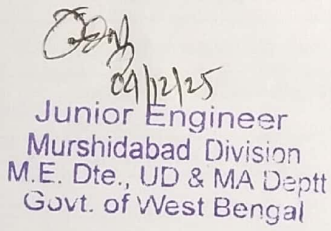 09/12/25
Junior Engineer
Murshidabad Division
M.E. Dte., UD & MA Deptt
Govt. of West Bengal